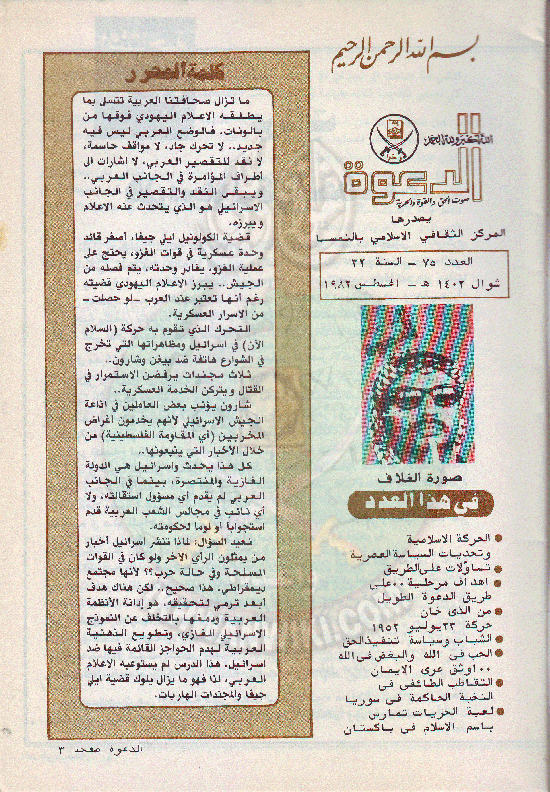 بسم الله الرحمن الرحيم
الله أكبر ولله الحمد
الدعوة
صوت الحق والقوة والحرية
يصدرها
المركز الثقافي الاسلامي بالنمسا
العدد ٧٥ - السنة ٣٢
شوال ١٤٠٢ هـ - اغسطس ١٩٨٢
صورة الغلاف
في هذا العدد
الحركة الاسلامية
وتحديات السياسة العصرية
تساؤلات على الطريق
اهداف مرحلية ٠٠ على
طريق الدعوة الطويل
من الذى خان
حركة ٢٣ يوليو ١٩٥٢
الشباب وسياسة تنفيذ الحق
الحب فى الله والبغض فى الله
٠٠ اوثق عرى الايمان
التقاطب الطائفى فى
النخبة الحاكمة فى سوريا
لعبة الحريات تمارس
باسم الاسلام فى باكستان
كلمة المحرر
ما تزال صحافتنا العربية تتسلى بما
يطلقه الاعلام اليهودي فوقها من
بالونات. فالوضع العربي ليس فيه
جديد.. لا تحرك جاد، لا مواقف حاسمة،
لا نقد للتقصير العربي، لا اشارات الى
أطراف المؤامرة في الجانب العربي..
ويبقى النقد والتقصير في الجانب
الاسرائيلي هو الذي يتحدث عنه الاعلام
ويبرزه.
قضية الكولونيل ايلي جيفا، أصغر قائد
وحدة عسكرية في قوات الغزو، يحتج على
عملية الغزو، يغادر وحدته، يتم فصله من
الجيش.. يبرز الاعلام اليهودي قضيته
رغم أنها تعتبر عند العرب -لو حصلت-
من الاسرار العسكرية.
التحرك الذي تقوم به حركة (السلام
الآن) في اسرائيل ومظاهراتها التي تخرج
في الشوارع هاتفة ضد بيغن وشارون..
ثلاث مجندات يرفضن الاستمرار في
القتال ويتركن الخدمة العسكرية..
شارون يؤنب بعض العاملين في اذاعة
الجيش الاسرائيلي لأنهم يخدمون أغراض
المخربين (أي المقاومة الفلسطينية) من
خلال الأخبار التي يتبعونها..
كل هذا يحدث واسرائيل هي الدولة
الغازية والمنتصرة، بينما في الجانب
العربي لم يقدم أي مسؤول استقالته، ولا
أي نائب في مجالس الشعب العربية قدم
استجوابا أو لوما لحكومته.
نعيد السؤال: لماذا تنشر اسرائيل أخبار
من يمثلون الرأي الآخر ولو كان في القوات
المسلحة وفي حالة حرب؟؟ لأنها مجتمع
ديمقراطي. هذا صحيح.. لكن هناك هدف
أبعد ترمي لتحقيقه، هو إدانة الأنظمة
العربية ودمغها بالتخلف عن النموذج
الاسرائيلي الغازي، وتطويع الذهنية
العربية لهدم الحواجز القائمة فيها ضد
اسرائيل. هذا الدرس لم يستوعبه الاعلام
العربي، لذا فهو ما يزال يلوك قضية ايلي
جيفا والمجندات الهاربات.
الدعوة صفحة ٣